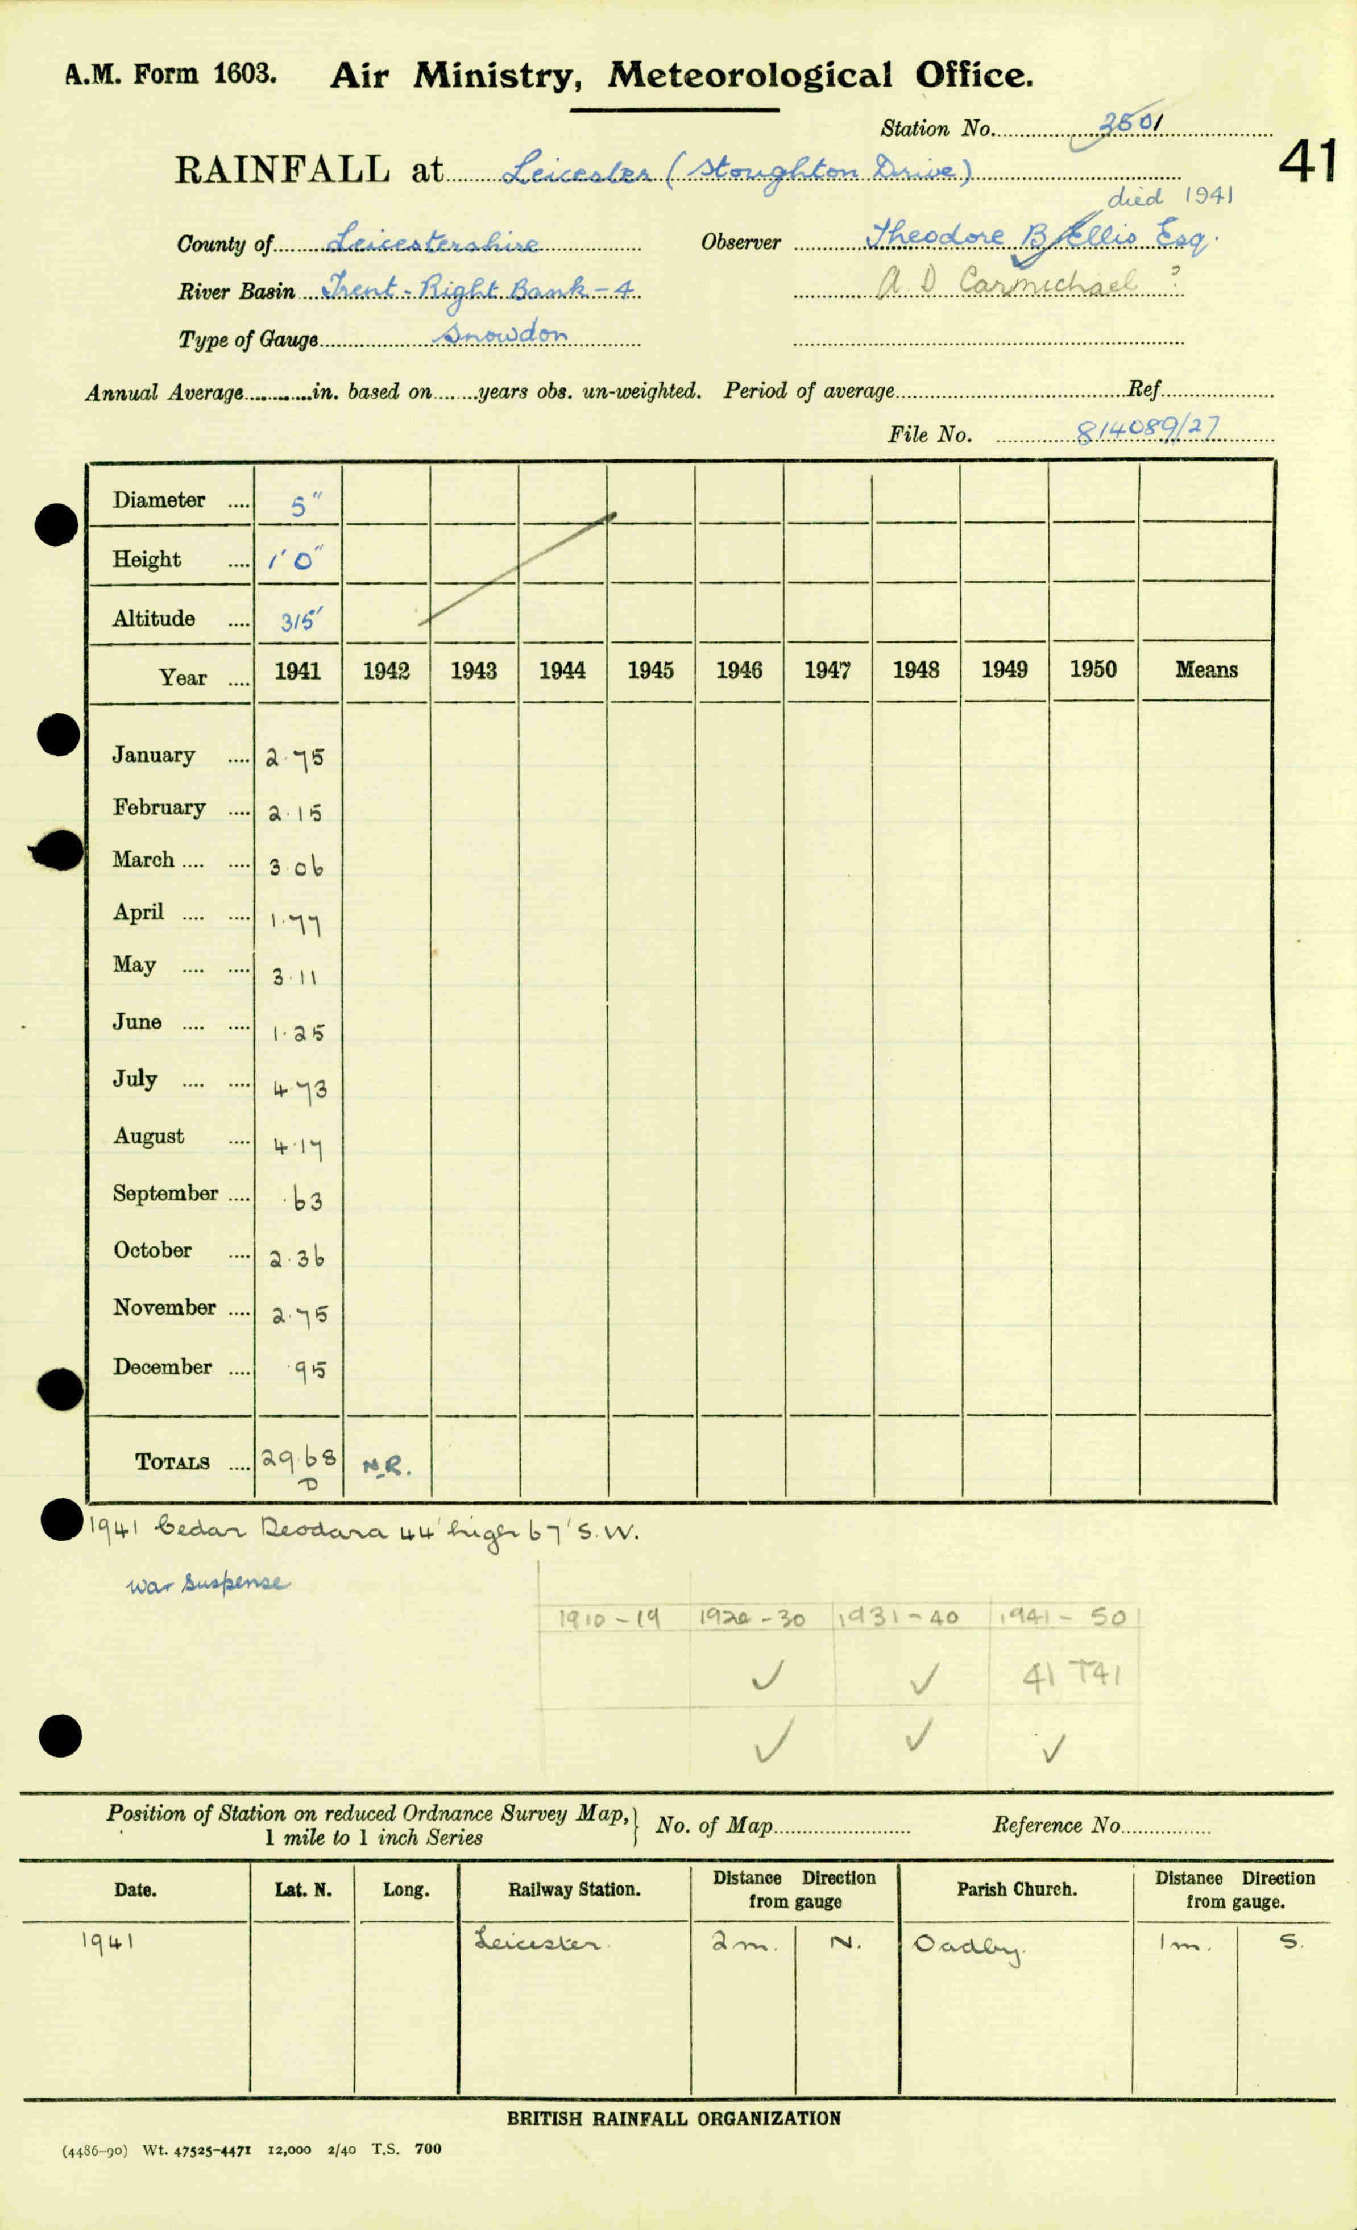 A.M. Form 1603. Air Ministry, Meteorological Office.
Station No. 2501
41
RAINFALL at Leicester (Stoughton Drive)
died 1941
County of Leicestershire Observer Theodore B Ellis Esq.
River Basin Trent - Right Bank - 4 A D Carmichael ?
Type of Gauge Snowdon
Annual Average............in. based on........years obs. un-weighted. Period of average.............Ref.............
File No. 814089/27
Diameter .... 5"
Height .... 1' 0"
Altitude .... 315'
Year .... 1941 1942 1943 1944 1945 1946 1947 1948 1949 1950 Means
January .... 2.75
February .... 2.15
March .... .... 3.06
April .... .... 1.77
May .... .... 3.11
June .... .... 1.25
July .... .... 4.73
August .... 4.17
September .... .63
October .... 2.36
November .... 2.75
December .... .95
TOTALS .... 29.68 N.R.
D
1941 Cedar Deodara 44' high 67' S.W.
War Suspense
1910-19 1920-30 1931-40 1941-50
✓ ✓ 41 T41
✓ ✓ ✓
Position of Station on reduced Ordnance Survey Map, } No. of Map............ Reference No............
1 mile to 1 inch Series
Date. Lat. N. Long. Railway Station. Distance Direction from gauge Parish Church. Distance Direction from gauge.
1941 Leicester. 2m. N. Oadby. 1m. S.
BRITISH RAINFALL ORGANIZATION
(4486-90) Wt. 47525-4471 12,000 2/40 T.S. 700